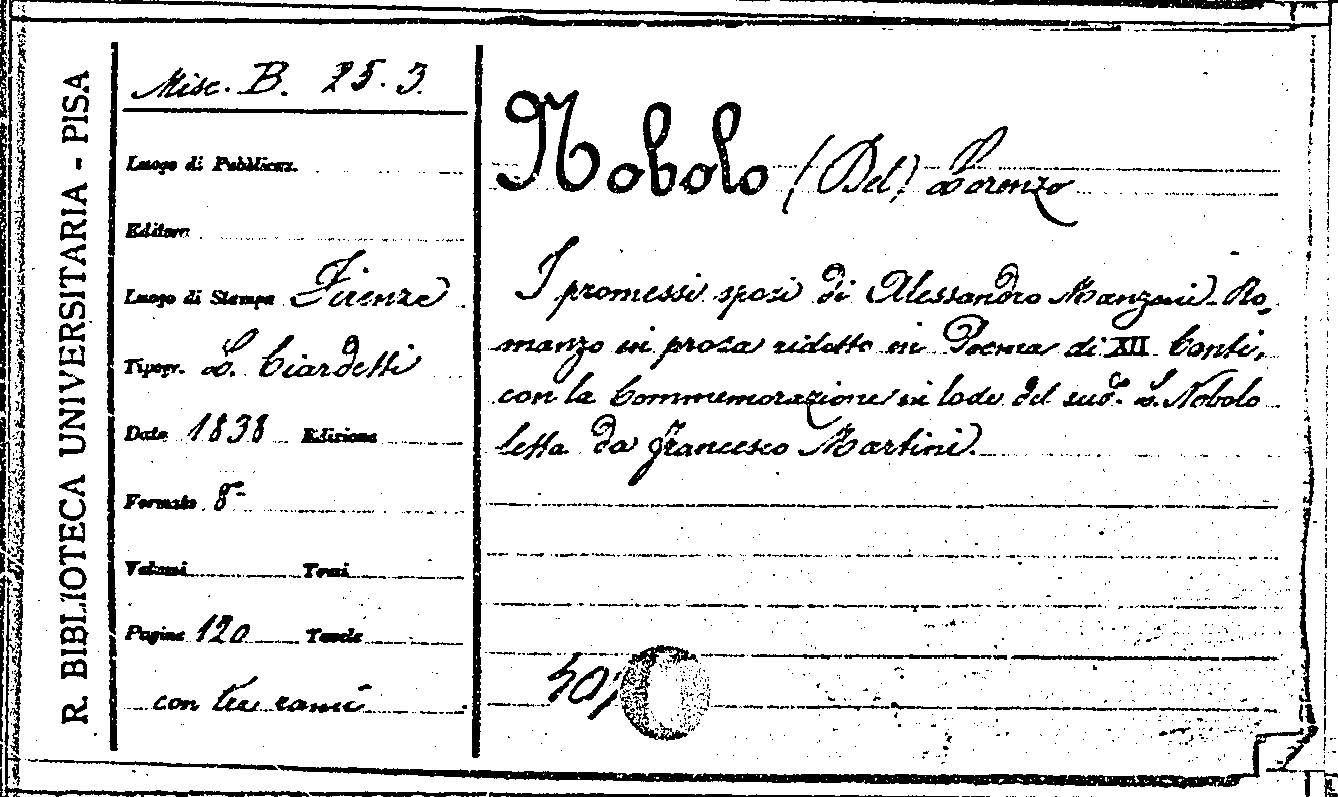 R. BIBLIOTECA UNIVERSITARIA - PISA
Misc. B. 25. 3.
Luogo di Pubblicaz.
Editore
Luogo di Stampa Firenze
Tipogr. L. Ciardetti
Data 1838 Edizione
Formato 8°
Volumi Tomi
Pagine 120 Tavole
con tre rami
Nobolo (Del) Lorenzo
I promessi sposi di Alessandro Manzoni - Ro-
manzo in prosa ridotto in Poema di XII Canti,
con la Commemorazione in lode del sud.° L. Nobolo
letta da Francesco Martini.